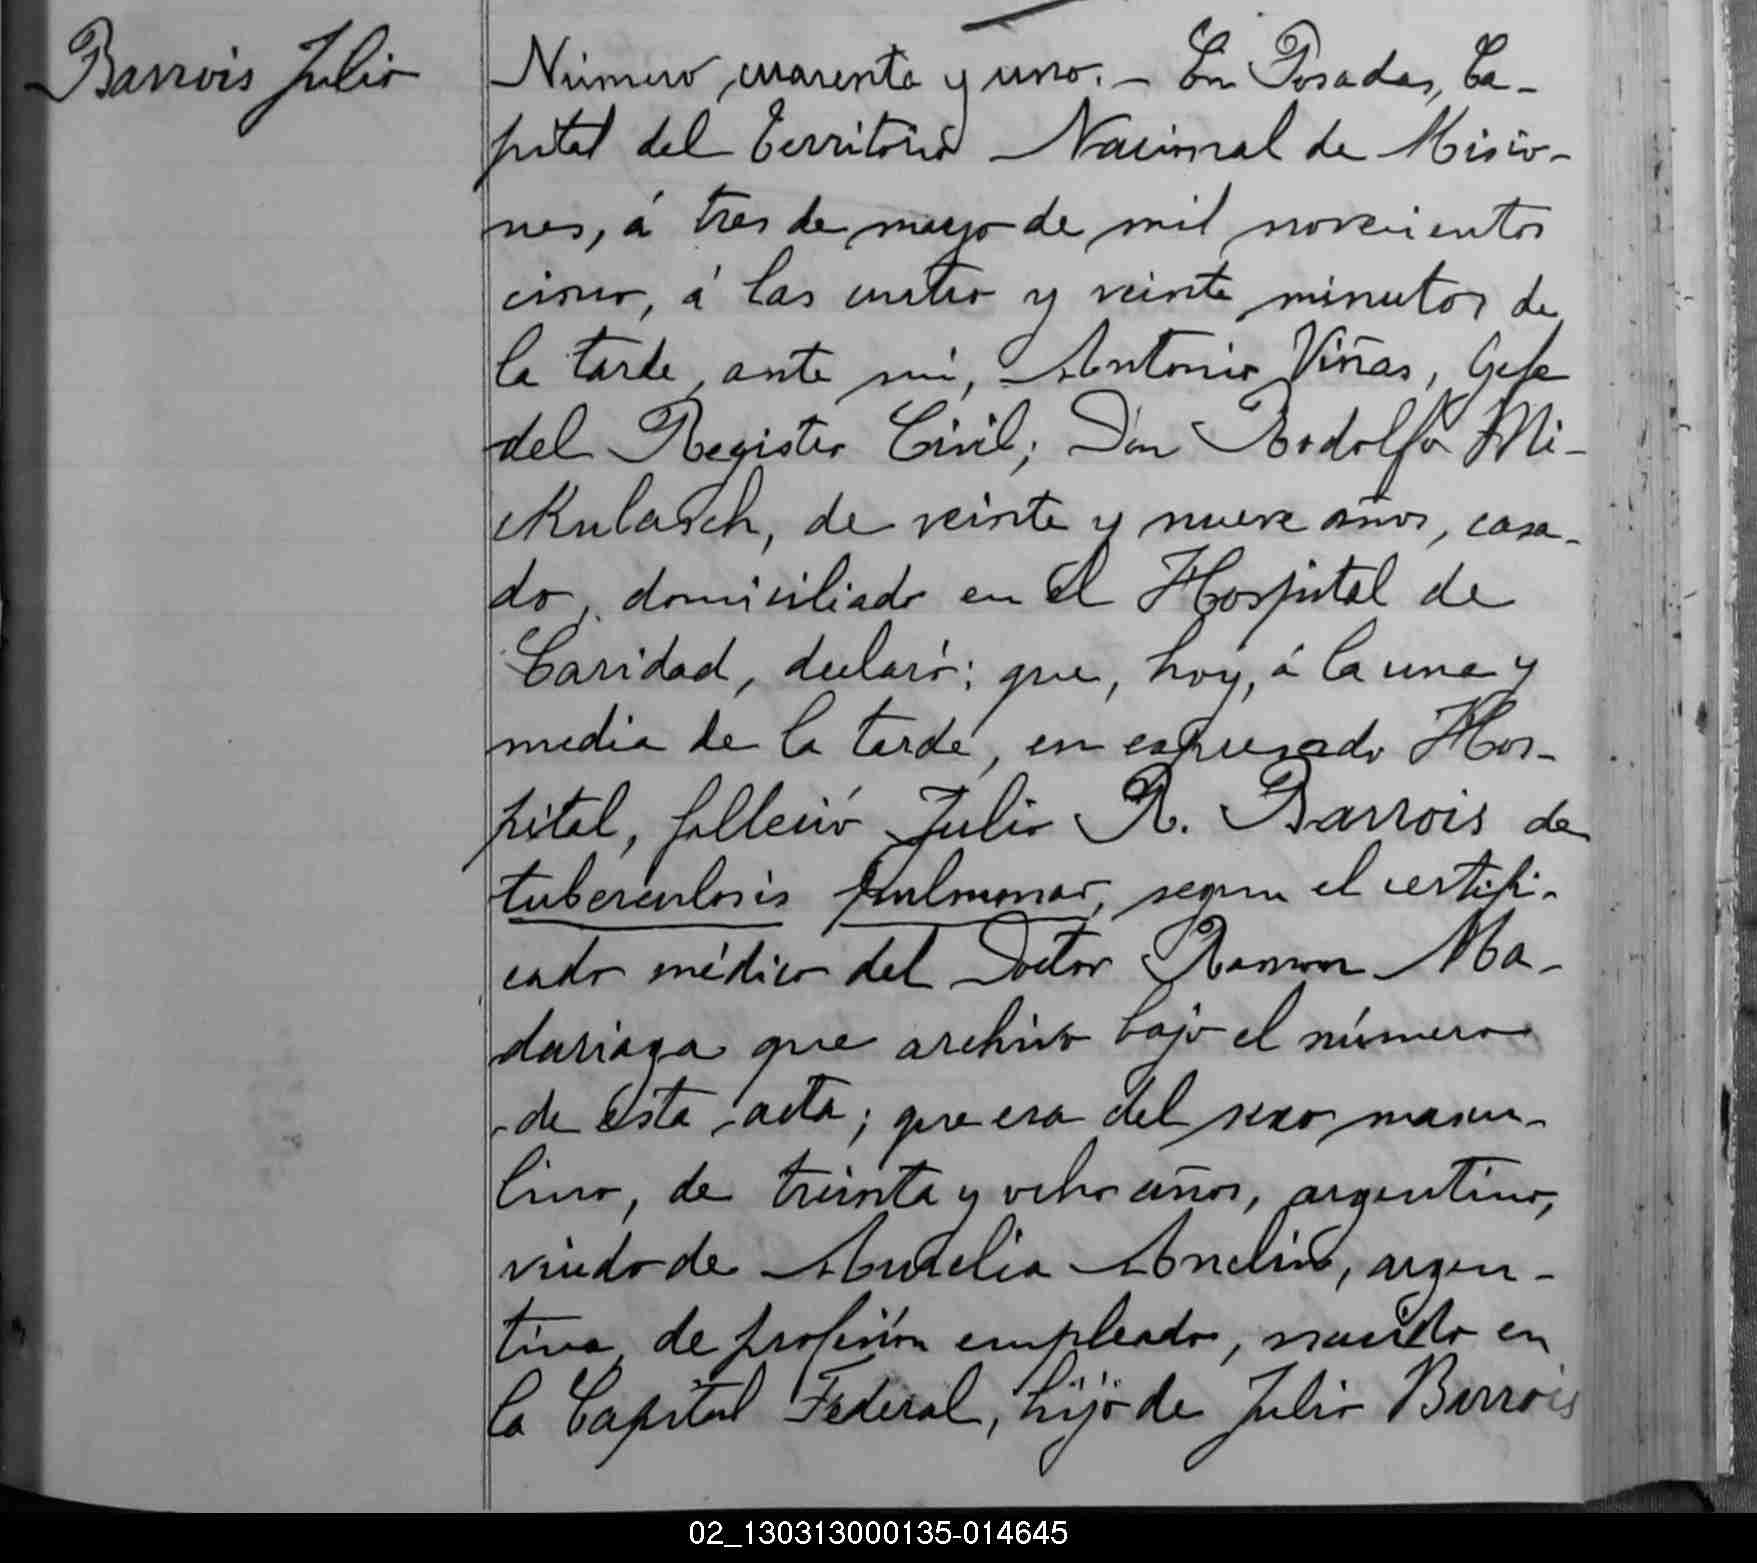 Barrois Julio
Número cuarenta y uno. — En Posadas, Ca-
pital del Territorio Nacional de Misio-
nes, á tres de mayo de mil novecientos
cinco, á las cuatro y veinte minutos de
la tarde, ante mi, Antonio Viñas, Gefe
del Registro Civil; Don Rodolfo Mi-
kulasch, de veinte y nueve años, casa-
do, domiciliado en el Hospital de
Caridad, declaró: que, hoy, á la una y
media de la tarde, en expresado Hos-
pital, falleció Julio R. Barrois de
tuberculosis pulmonar, segun el certifi-
cado médico del Doctor Ramon Ma-
dariaga que archivo bajo el número
de esta acta; que era del sexo mascu-
lino, de treinta y ocho años, argentino,
viudo de Aurelia, argen-
tina, de profesión empleado, nacido en
la Capital Federal, hijo de Julio Barrois
02_130313000135-014645